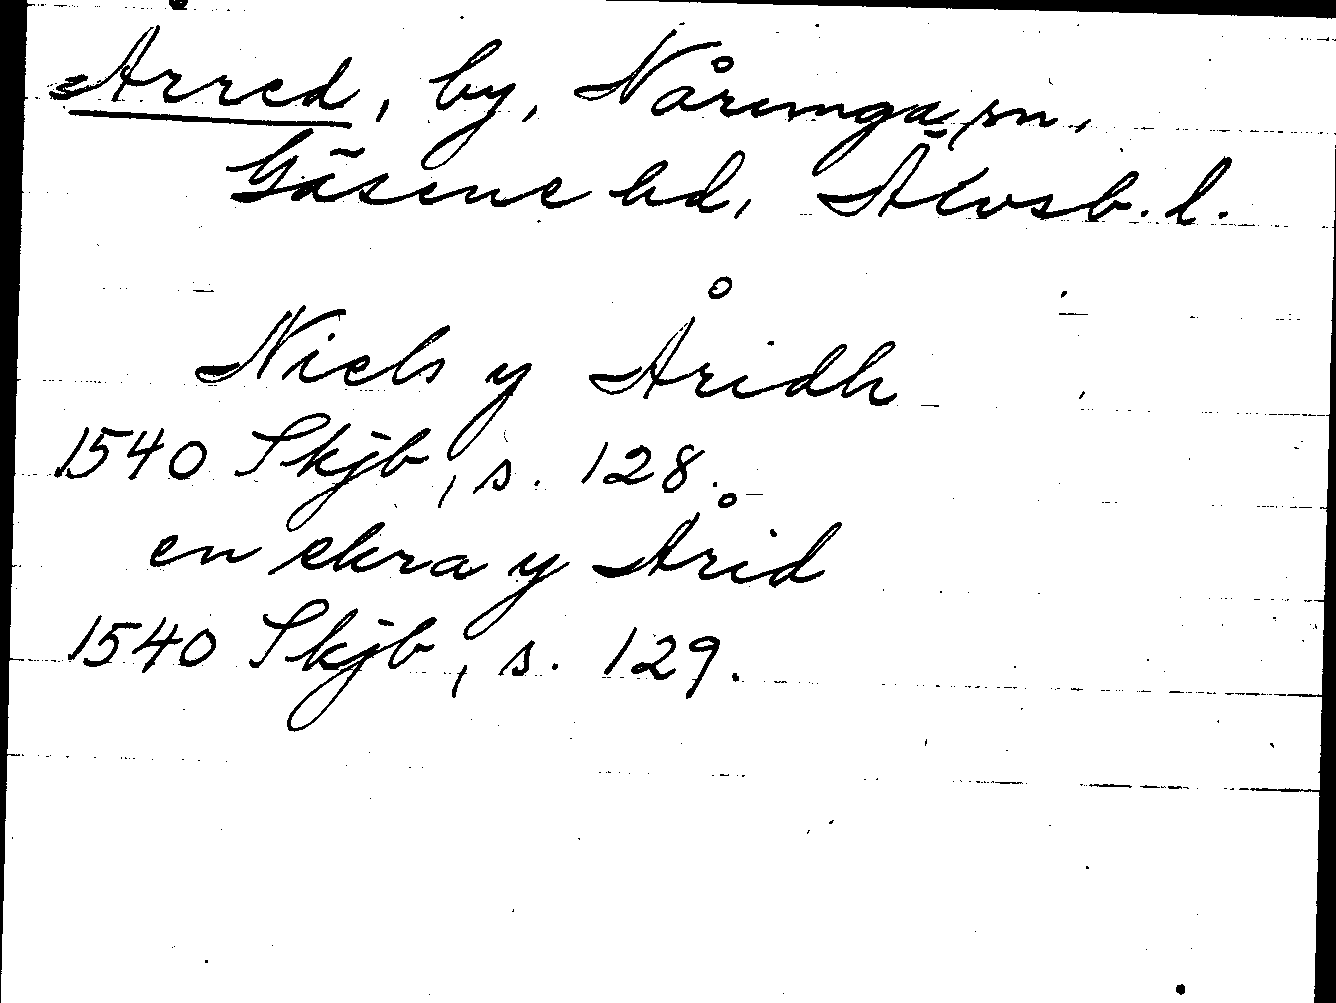 Årred, by, Nårunga sn,
Gäsene hd, Älvsb. l.
Niels y Åridh
1540 Skjb, s. 128.
en ekra y Årid
1540 Skjb, s. 129.